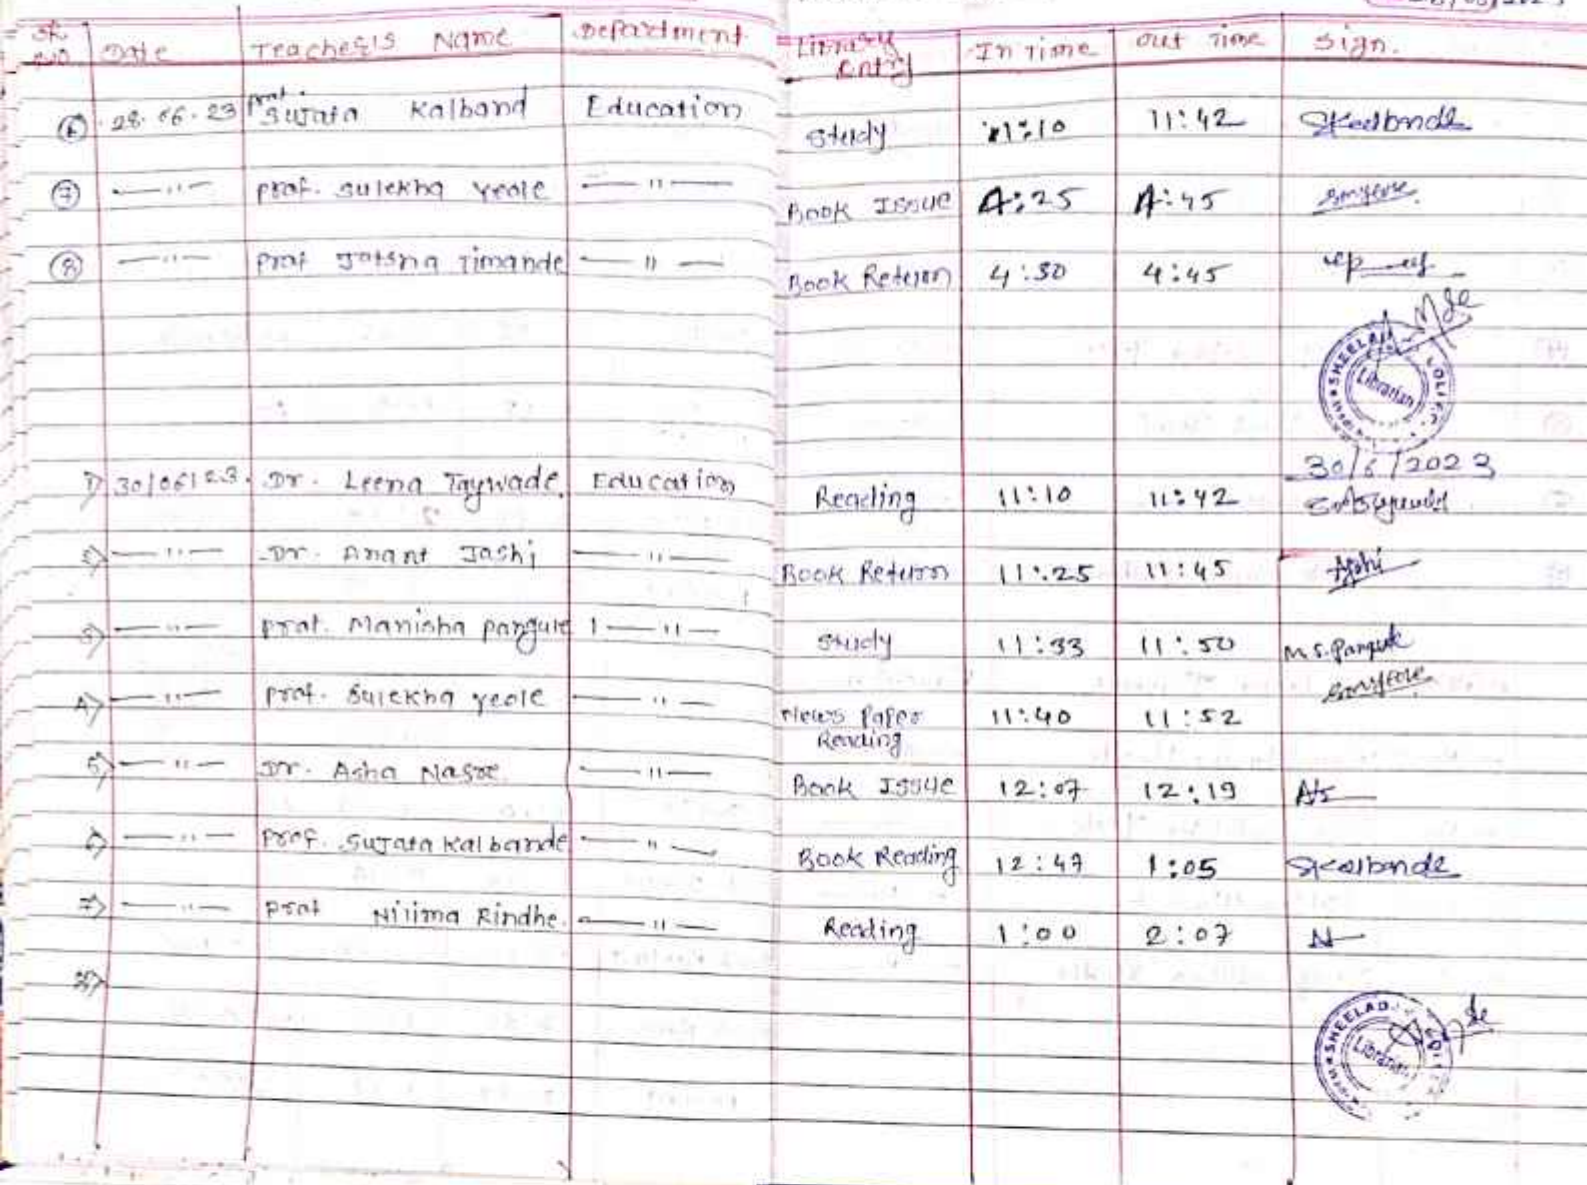 Sr. No. Date Teacher's Name Department Library Entry In Time Out Time Sign.
6 28.06.23 Prof. Sujata Kalband Education Study 11:10 11:42 Skalbande
7 —"— Prof. Sulekha Yeole —"— Book Issue 4:25 4:45
8 —"— Prof Jotsna Timande —"— Book Return 4:30 4:45
SHEELA
Librarian
30/6/2023
1) 30/06/23. Dr. Leena Taywade. Education Reading 11:10 11:42
2) —"— Dr. Anant Jashi —"— Book Return 11:25 11:45 Ajoshi
3) —"— Prof. Manisha Pangule —"— Study 11:33 11:50 M.S. Pangule
4) —"— Prof. Sulekha Yeole —"— News Paper Reading 11:40 11:52
5) —"— Dr. Asha Nasre —"— Book Issue 12:07 12:19
6) —"— Prof. Sujata Kalbande —"— Book Reading 12:47 1:05 Skalbande
7) —"— Prof Nilima Rindhe. —"— Reading 1:00 2:07 N
8)
SHEELAD
Librarian